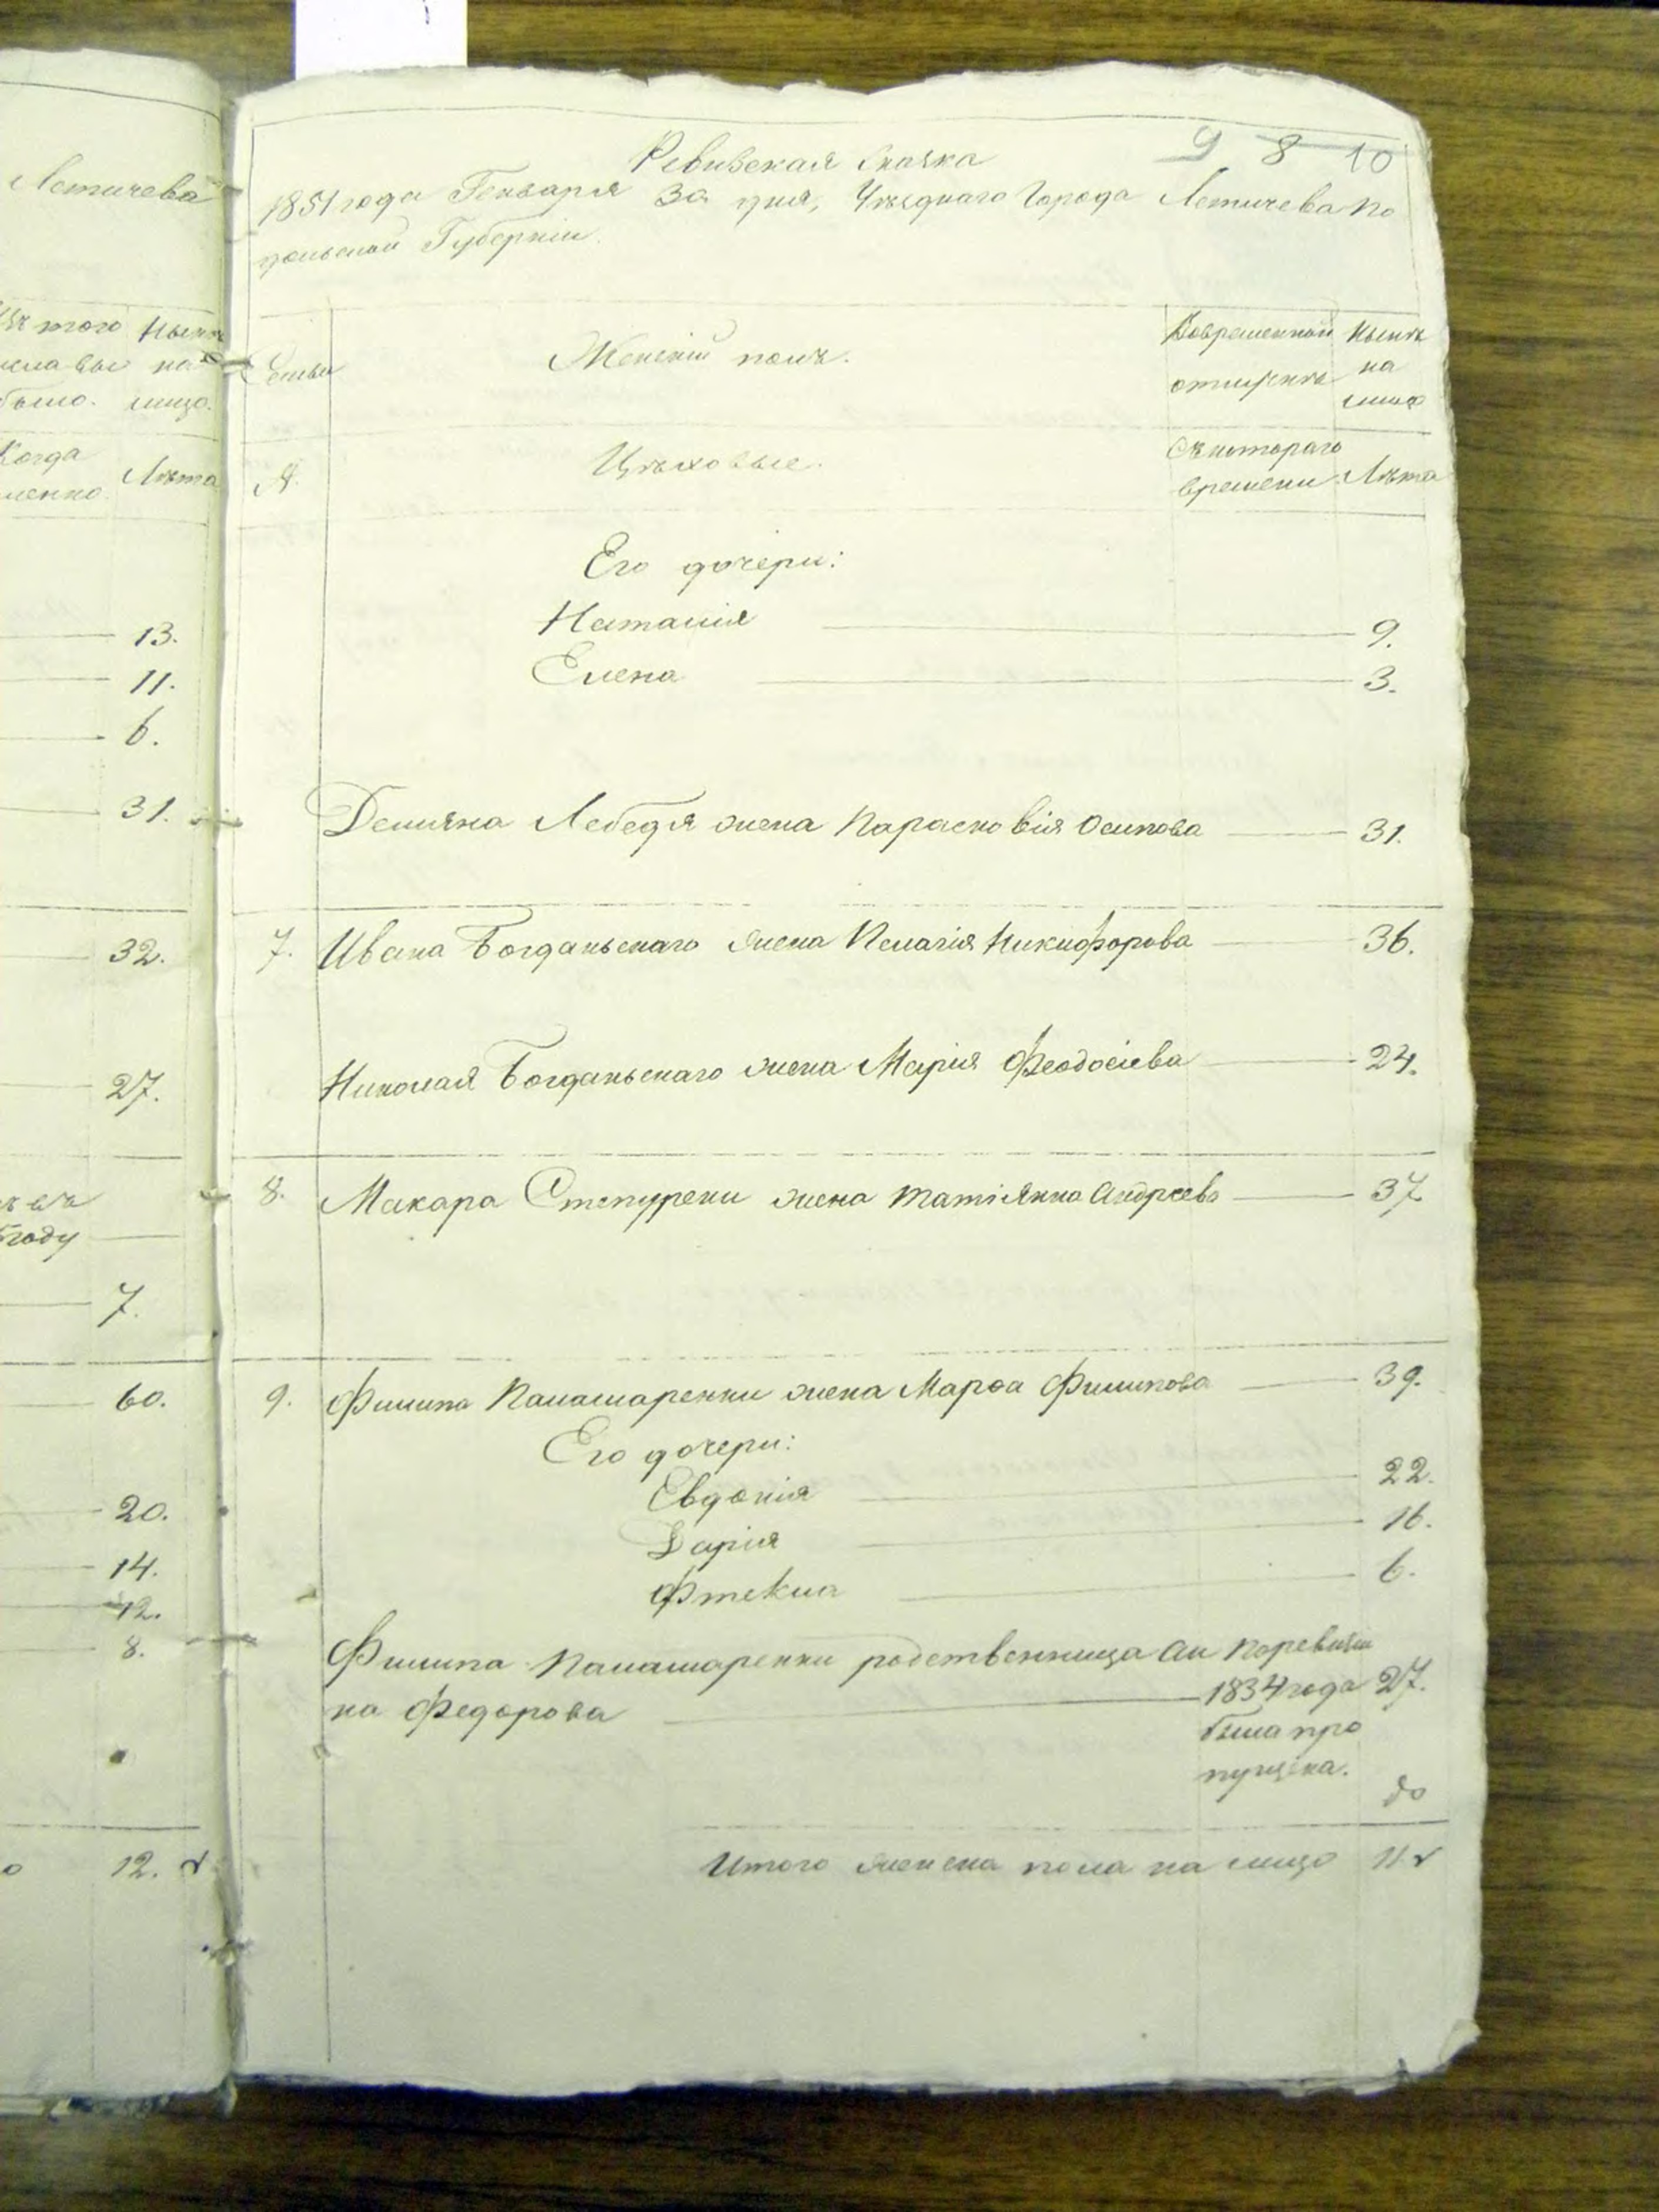 Летичева
9 8 10
Ревизская Сказка
1851 года Генваря 30 дня, Уѣзднаго Города Летичева По
дольской Губерніи.
того Нынѣ
на
было. лицо.
Когда
Лѣта
Семьи
Женскій полъ.
Вовременной Нынѣ
отлучкѣ на
лицо
№
Цѣховые.
Съ котораго
времени Лѣта
Его дочери:
Наталія 9.
Елена 3.
13.
11.
6.
31.
Деміяна Лебедя жена Парасковія Осипова 31.
32.
7. Ивана Богданьскаго жена Пелагія Никифорова 36.
27.
Николая Богданьскаго жена Марія Феодосіева 24.
году
7.
8. Макара жена Татіянна Андреева 37
60.
9. Филипа жена Марѳа Филипова 39.
Его дочери:
Евдокія 22.
Дарія 16.
6.
20.
14.
12.
8.
Филипа родственница Ан По ревизіи
на Федорова 1834 года 27.
была про
пущена.
12.
Итого женска пола на лицо 11